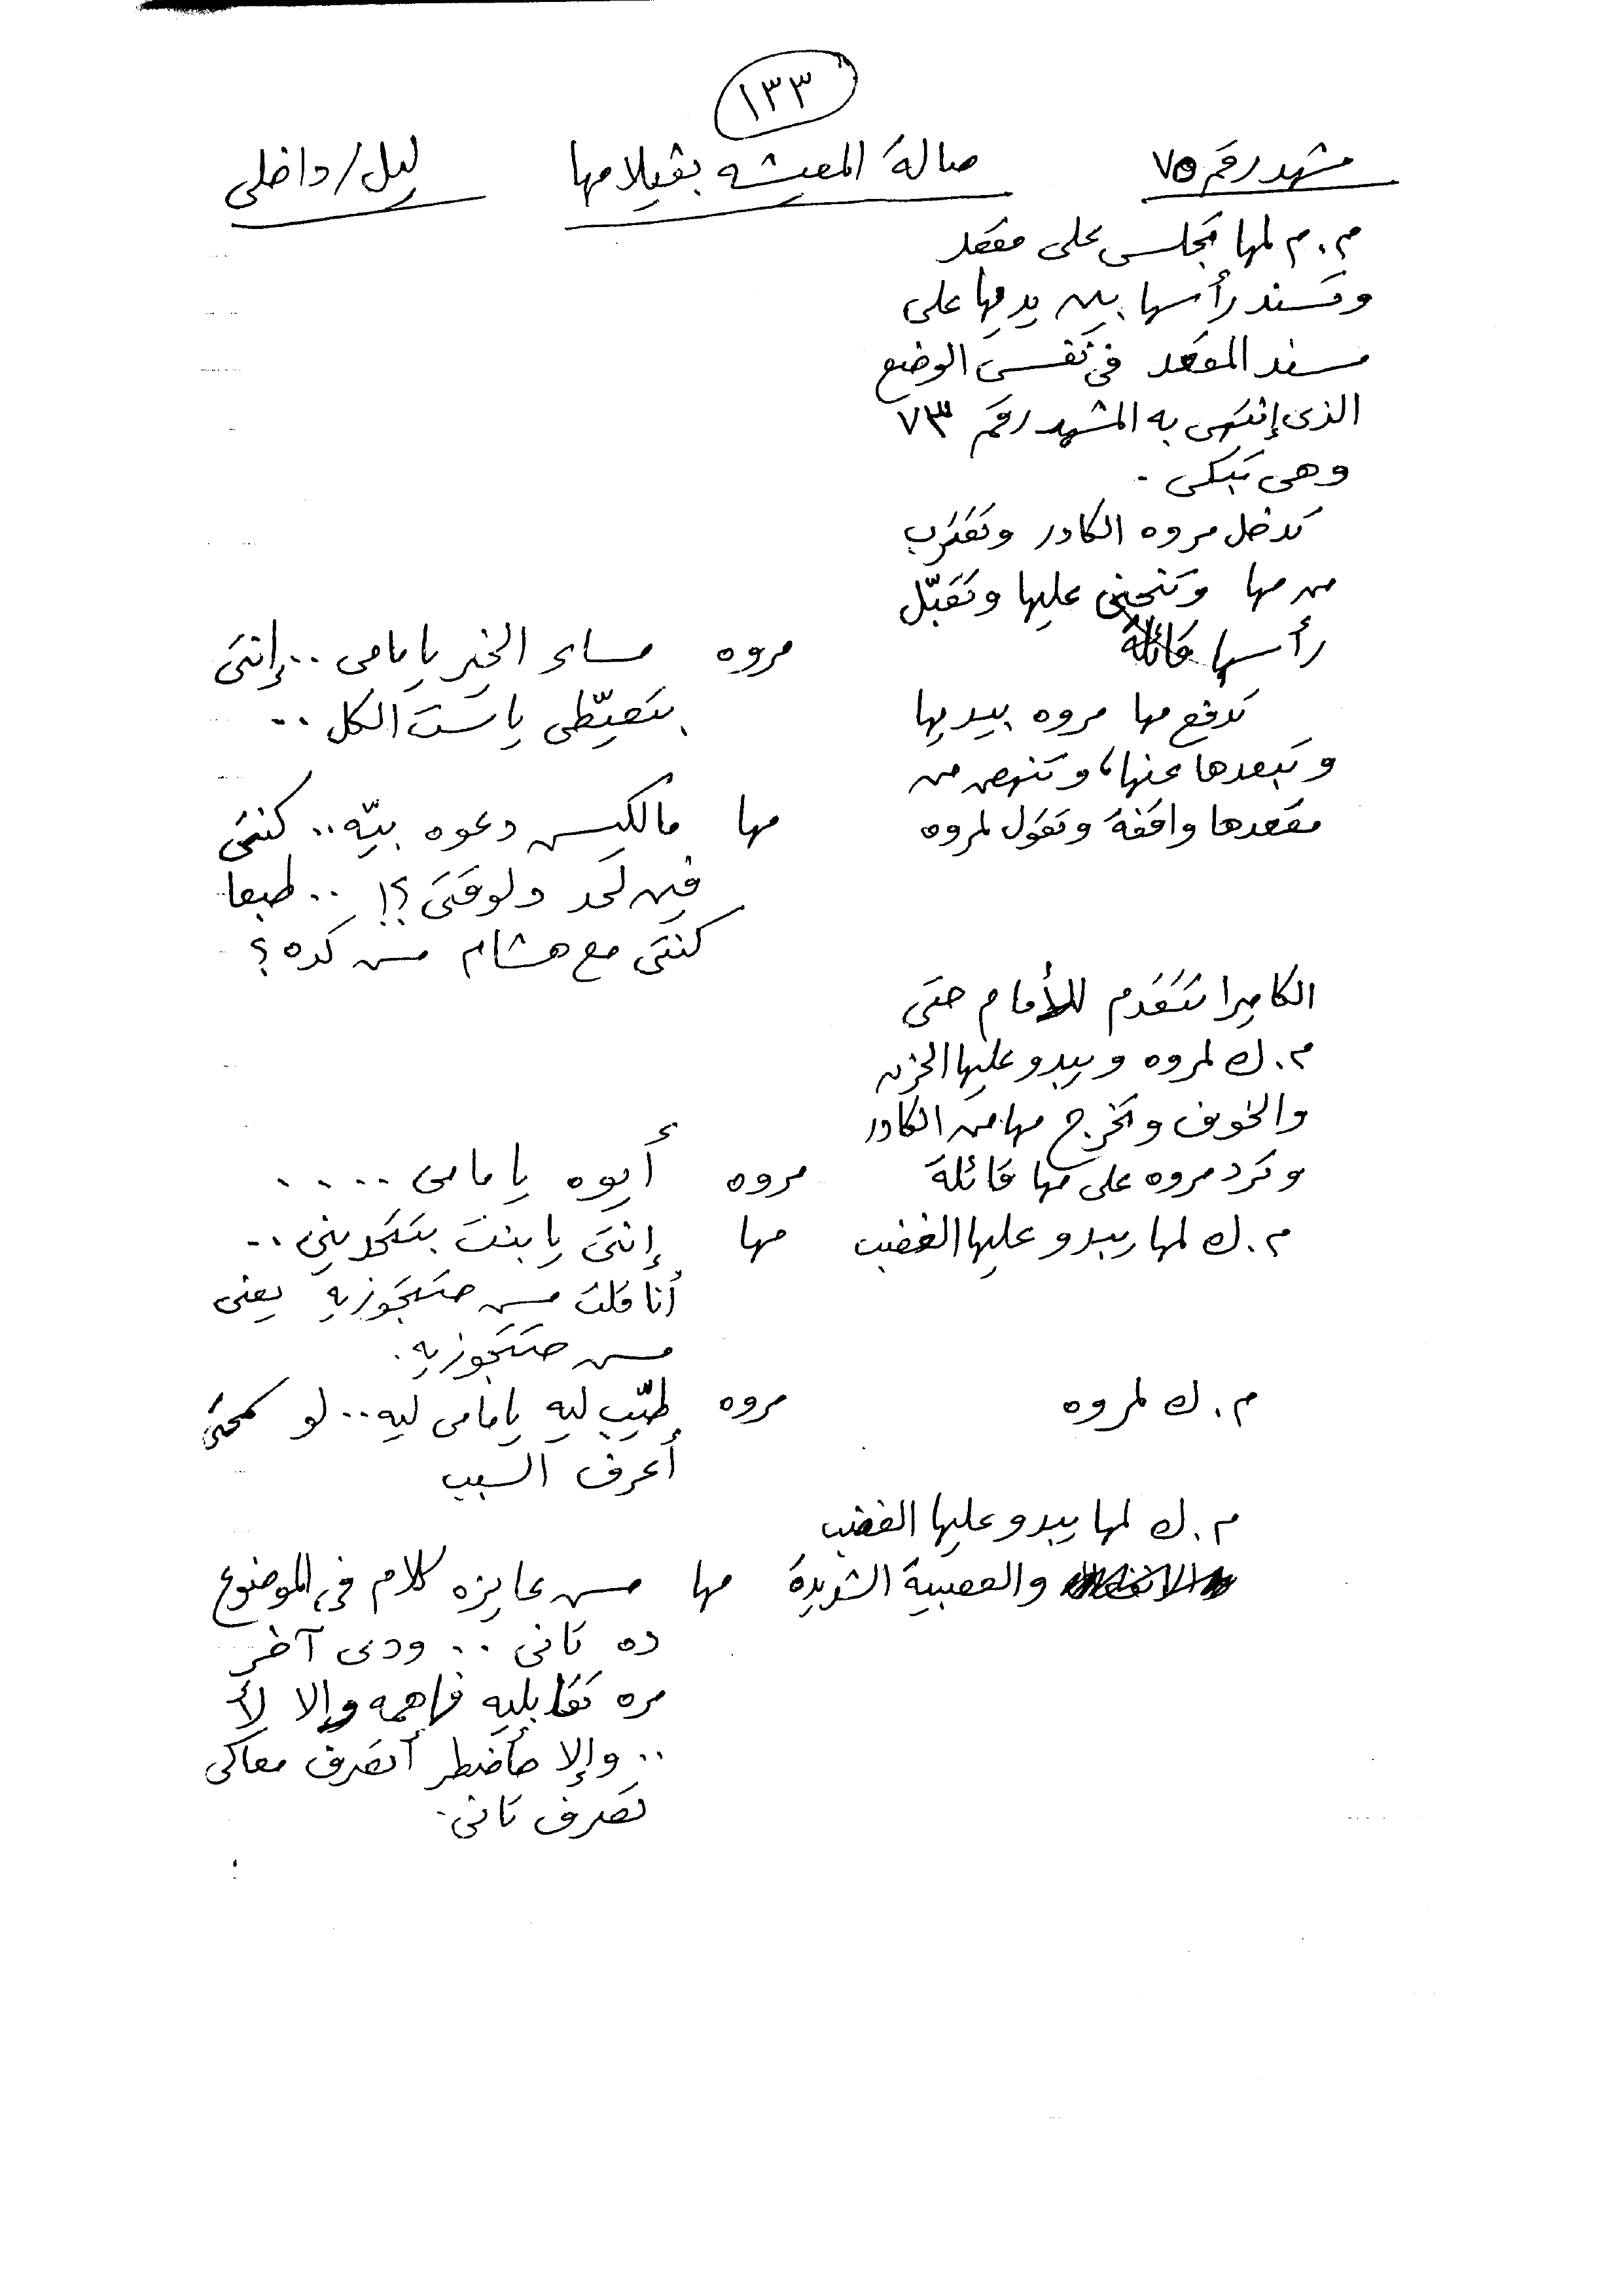 ١٣٣
مشهد رقم ٧٥ صالة المعيشه بڤيلا مها ليل/داخلى
م.م لمها تجلس على مقعد
وتسند رأسها بين يديها على
مسند المقعد فى نفس الوضع
الذى إنتهى به المشهد رقم ٧٣
وهى تبكى.
تدخل مروه الكادر وتقترب
من مها وتنحنى عليها وتقبّل
رأسها قائلة مروه مساء الخير يا مامى .. إنتى
بتعيّطى يا ست الكل ..
تدفع مها مروه بيديها
وتبعدها عنها، وتنهض من
مقعدها واقفة وتقول لمروه مها مالكيش دعوه بيّه .. كنتى
فين لحد دلوقتى؟! .. طبعا
كنتى مع هشام مش كده؟
الكاميرا تتقدم للأمام حتى
م.ك لمروه ويبدو عليها الحزن
والخوف وتخرج مها من الكادر
وترد مروه على مها قائلة مروه أيوه يا مامى ....
م.ك لمها يبدو عليها الغضب مها إنتى يا بنت بتتحدينى ..
أنا قلت مش حتتجوزيه يعنى
مش حتتجوزيه.
م.ك لمروه مروه طيّب ليه يا مامى ليه .. لو سمحتى
أعرف السبب
م.ك لمها يبدو عليها الغضب
والعصبية الشديدة مها مش عايزه كلام فى الموضوع
ده تانى .. ودى آخر
مره تقابليه فاهمه وإلا لأ
.. وإلا حأضطر أتصرف معاكى
تصرف تانى.